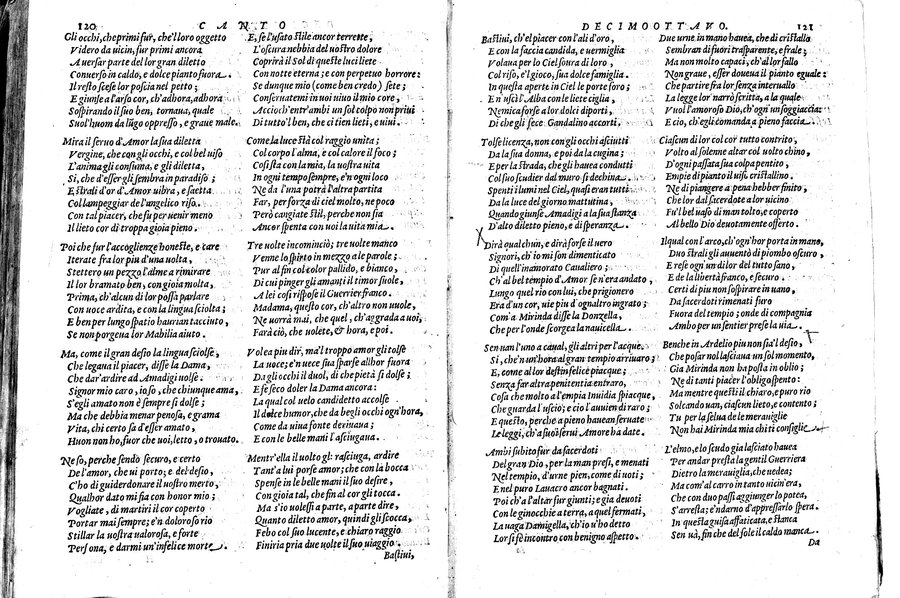 120
CANTO
Gli occhi, che prima fur, che'l loro oggetto
Videro da uicin, fur primi ancora
A uersar parte del lor gran diletto
Conuerso in caldo, e dolce pianto fuora.
Il resto scese lor poscia nel petto;
E giunse a l'arso cor, ch'adhora, adhora
Sospirando il suo ben, tornaua, quale
Suol'huom da lūgo oppresso, e graue male.
Mira il seruo d'Amor la sua diletta
Vergine, che con gli occhi, e col bel uiso
L'anima gli consuma, e gli diletta
Si, che d'esser gli sembra in paradiso;
E strali d'or d'Amor uibra, e saetta
Col lampeggiar de l'angelico riso.
Con tal piacer, che fu per uenir meno
Il lieto cor di troppa gioia pieno.
Poi che fur l'accoglienze honeste, e care
Iterate fra lor piu d'una uolta,
Stettero un pezzo l'alme a rimirare
Il lor bramato ben, con gioia molta,
Prima, ch'alcun di lor possa parlare
Con uoce ardita, e con la lingua sciolta;
E ben per lungo spatio haurian tacciuto,
Se non porgeua lor Mabilia aiuto.
Ma, come il gran desio la lingua sciolse,
Che legaua il piacer, disse la Dama,
Che dar'ardire ad Amadigi uolse.
Signor mio caro, io so, che chiunque ama,
S'egli amato non è sempre si dolse;
Ma che debbia menar penosa, e grama
Vita, chi certo sa d'esser amato,
Huom non ho, fuor che uoi, letto, o trouato.
Ne so, perche sendo securo, e certo
De l'amor, che ui porto; e del desio,
C'ho di guiderdonare il uostro merto,
Qualhor dato mi sia con honor mio;
Vogliate, di martiri il cor coperto
Portar mai sempre; e'n doloroso rio
Stillar la uostra ualorosa, e forte
Persona, e darmi un'infelice morte.
E, se l'usato stile ancor terrete,
L'oscura nebbia del uostro dolore
Coprirà il Sol di queste luci liete
Con notte eterna; e con perpetuo horrore:
Se dunque mio (come ben credo) sete;
Conseruatemi in uoi uiuo il mio core,
Accioch'entrambi un sol colpo non priui
Di tutto'l ben, che ci tien lieti, e uiui.
Come la luce stà col raggio unita;
Col corpo l'alma, e col calore il foco;
Così sta con la mia, la uostra uita
In ogni tempo sempre, e'n ogni loco
Ne da l'una potrà l'altra partita
Far, per forza di ciel molto, ne poco
Però cangiate stil, perche non sia
Ancor spenta con uoi la uita mia.
Tre uolte incominciò; tre uolte manco
Venne lo spirto in mezzo a le parole;
Pur al fin col color pallido, e bianco,
Di cui pinger gli amanti il timor suole,
A lei così rispose il Guerrier franco.
Madama, questo cor, ch'altro non uuole,
Ne uorrà mai, che quel, ch'aggrada a uoi,
Farà ciò, che uolete, & hora, e poi.
Volea piu dir; ma'l troppo amor gli tolse
La uoce; e'n uece sua sparse allhor fuora
Da gli occhi il duol, di che pietà si dolse;
E se seco doler la Dama ancora:
La qual col uelo candidetto accolse
Il dolce humor, che da begli occhi ogn'hora,
Come da uiua fonte deriuaua;
E con le belle mani l'asciugaua.
Mentr'ella il uolto gli rasciuga, ardire
Tant'a lui porse amor; che con la bocca
Spense in le belle mani il suo desire,
Con gioia tal, che fin al cor gli tocca.
Ma s'io uolessi a parte, a parte dire,
Quanto diletto amor, quindi gli scocca,
Febo col suo lucente, e chiaro raggio
Finiria pria due uolte il suo uiaggio.
Bastiui,
DECIMOOTTAVO.
121
Bastiui, ch'el piacer con l'ali d'oro,
E con la faccia candida, e uermiglia
Volaua per lo Ciel soura di loro,
Col riso, e'l gioco, sua dolce famiglia.
In questa aperte in Ciel le porte foro;
E n uscì l'Alba con le liete ciglia,
Nemica forse a lor dolci diporti,
Di che gli fece Gandalino accorti.
Tolse licenza, non con gli occhi asciutti
Da la sua donna, e poi da la cugina;
E per la strada, che gli hauea condutti
Col suo scudier dal muro si dechina.
Spenti i lumi nel Ciel, quasi eran tutti
Da la luce del giorno mattutina,
Quando giunse Amadigi a la sua stanza
D'alto diletto pieno, e di speranza.
Dirà qualchun, e dirà forse il uero
Signori, ch'io mi son dimenticato
Di quell'inamorato Caualiero;
Ch'al bel tempio d'Amor se n'era andato,
Lungo quel rio con lui, che prigionero
Era d'un cor, uie piu d'ognaltro ingrato;
Com'a Mirinda disse la Donzella,
Che per l'onde scorgea la nauicella.
Sen uan l'uno a caual, gli altri per l'acque.
Si, che'n un'hora al gran tempio arriuaro;
E, come al lor destin felice piacque;
Senza far altra penitentia entraro,
Cosa che molto a l'empia Inuidia spiacque,
Che guarda l'uscio; e cio l'auuien di raro;
E questo, perche a pieno hauean seruate
Le leggi, ch'a suoi serui Amore ha date.
Ambi subito fur da sacerdoti
Del gran Dio, per la man presi, e menati
Nel tempio, d'urne pien, come di uoti;
E nel puro Lauacro ancor bagnati.
Poi ch'a l'altar fur giunti; e gia deuoti
Con le ginocchie a terra, a quel fermati,
La uaga Damigella, ch'io u'ho detto
Lor si fe incontro con benigno aspetto.
Due urne in mano hauea, che di cristallo
Sembran di fuori trasparente, e frale;
Ma non molto capaci, ch'al lor fallo
Non graue, esser doueua il pianto eguale:
Che partire fra lor senza interuallo
La legge lor narrò scritta, a la quale
Vuol l'amoroso Dio, ch'ogn'un soggiaccia:
E cio, ch'egli comanda a pieno faccia.
Ciascun di lor col cor tutto contrito,
Volto al solenne altar col uolto chino,
D'ogni passata sua colpa pentito,
Empie di pianto il uaso cristallino.
Ne di piangere a pena hebber finito,
Che lor dal sacerdote a lor uicino
Fu'l bel uaso di man tolto, e coperto
Al bello Dio deuotamente offerto.
Il qual con l'arco, ch'ogn'hor porta in mano,
Duo strali gli auuentò di piombo oscuro,
E rese ogn'un di lor del tutto sano,
E de la libertà franco, e securo.
Certi di piu non sospirare in uano,
Da sacerdoti rimenati furo
Fuora del tempio; onde di compagnia
Ambo per un sentier prese la uia.
Benche in Ardelio piu non sia'l desio,
Che posar nol lasciaua un sol momento,
Gia Mirinda non ha posta in oblio;
Ne di tanti piacer l'obligo spento:
Ma mentre questi il chiaro, e puro rio
Solcando uan, ciascun lieto, e contento;
Tu per la selua de le merauiglie
Non hai Mirinda mia chi ti consiglie.
L'elmo, e lo scudo gia lasciato hauea
Per andar presta la gentil Guerriera
Dietro la merauiglia, che uedea;
Ma com'al carro in tanto uicin'era,
Che con duo passi aggiunger lo potea,
S'arresta; e'ndarno d'appressarlo spera.
In questa guisa affaticata, e stanca
Sen uà, fin che del sole il caldo manca.
Da